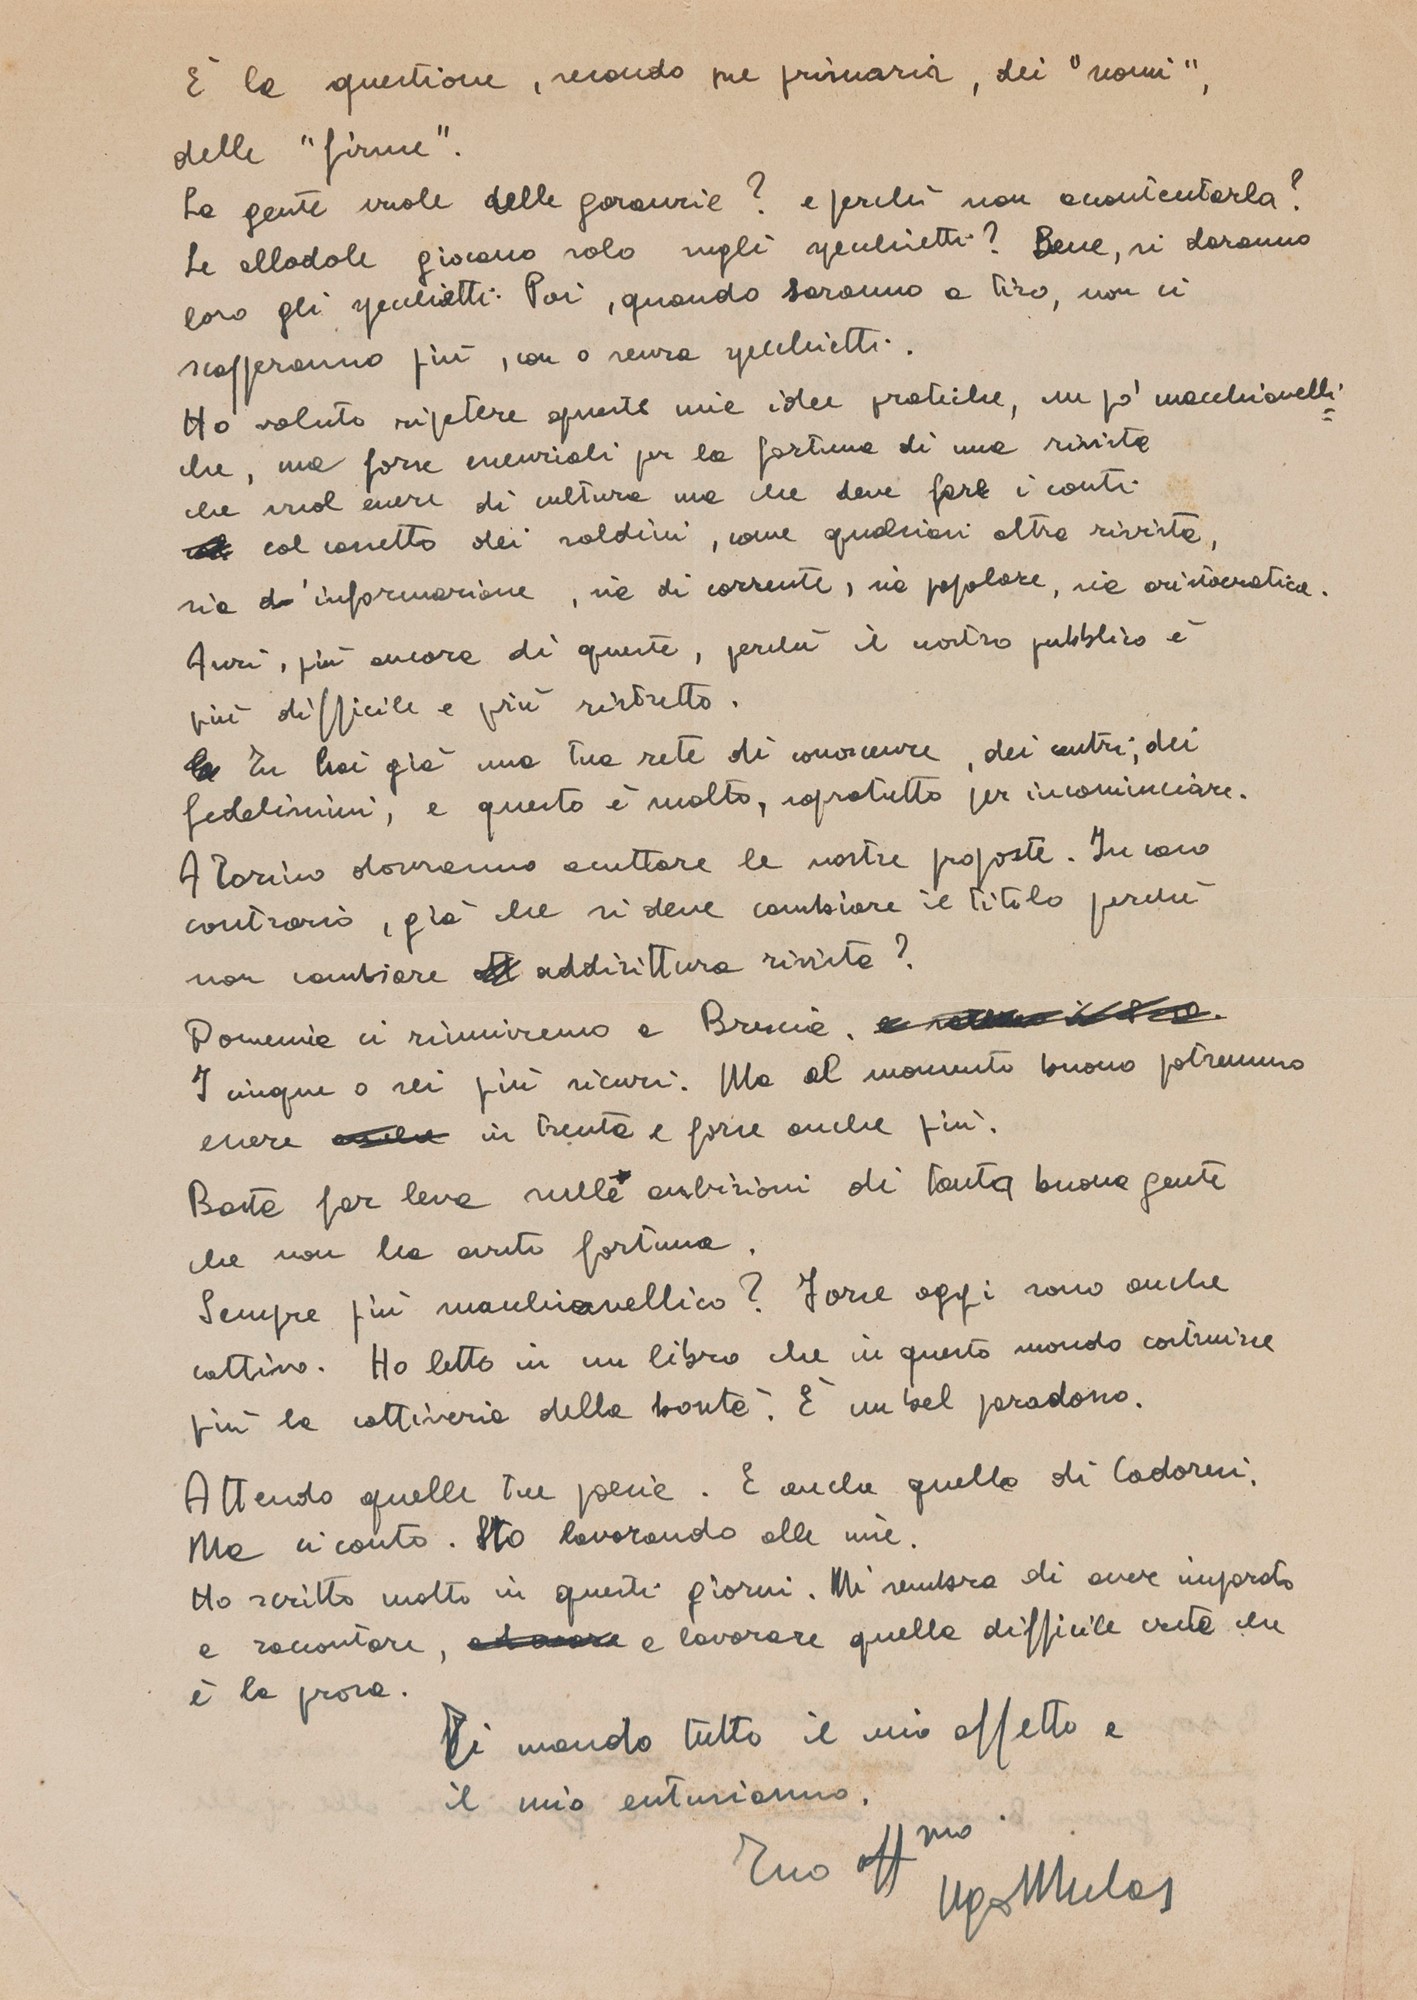 È la questione, secondo me primaria, dei "nomi",
delle "firme".
La gente vuole delle garanzie? e perché non accontentarla?
Le allodole giocano solo sugli specchietti? Bene, si daranno
loro gli specchietti. Poi, quando saranno a tiro, non ci
scapperanno più, con o senza specchietti.
Ho voluto ripetere queste mie idee pratiche, un po' macchiavelli=
che, ma forse essenziali per la fortuna di una rivista
che vuol essere di cultura ma che deve fare i conti
col cassetto dei soldini, come qualsiasi altra rivista,
sia d'informazione, sia di corrente, sia popolare, sia aristocratica.
Anzi, più ancora di queste, perché il nostro pubblico è
più difficile e più ristretto.
Tu hai già una tua rete di conoscenze, dei centri, dei
fedelissimi, e questo è molto, sopratutto per incominciare.
A Torino dovranno accettare le nostre proposte. In caso
contrario, già che si deve cambiare il titolo perché
non cambiare addirittura rivista?
Domenica ci riuniremo a Brescia.
I cinque o sei più sicuri. Ma al momento buono potremmo
essere in trenta e forse anche più.
Basta far leva sulle ambizioni di tanta buona gente
che non ha avuto fortuna.
Sempre più macchiavellico? Forse oggi sono anche
cattivo. Ho letto in un libro che in questo mondo costruisce
più la cattiveria della bontà. È un bel paradosso.
Attendo quelle tue poesie. E anche quelle di Cadoresi.
Ma ci conto. Sto lavorando alle mie.
Ho scritto molto in questi giorni. Mi sembra di aver imparato
a raccontare, a lavorare quella difficile creta che
è la prosa.
Ti mando tutto il mio affetto e
il mio entusiasmo.
Tuo aff.mo
Ugo Mulas